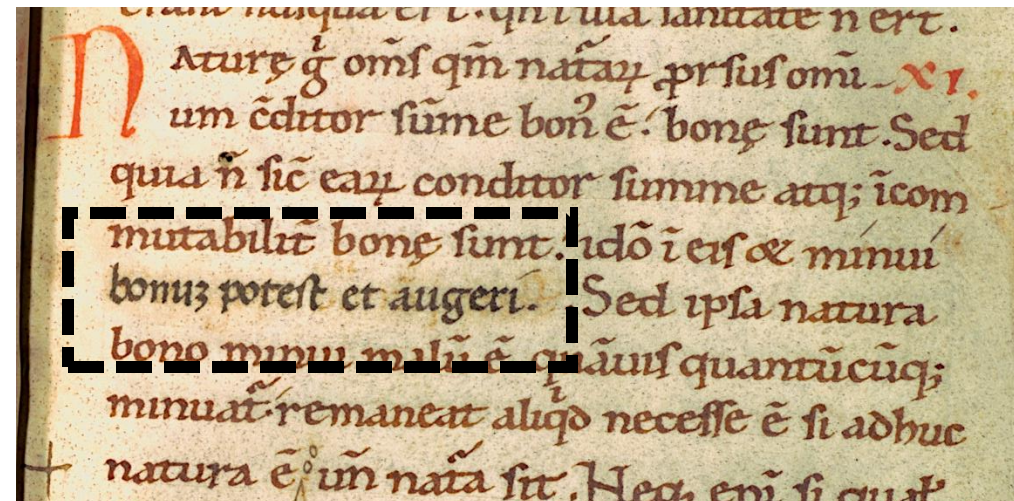 Naturę g̊ om̄s qm̄ nat̄aꝝ ꝓrsus omı̄ XI.
um c̄ditor sūme bon᾽ ē. bonę sunt. Sed
quia n̄ sic̄ eaꝝ conditor summe atq; īcom
mutabilit̄ bonę sunt. idō ī eis & minui
bonuʒ potest et augeri. Sed ipsa natura
bono minui malū ē quāuis quantūcūq;
minuat̄ remaneat aliqͥd necesse ē si adhuc
natura ē un̄ nat̄a sit. Neq, eni si